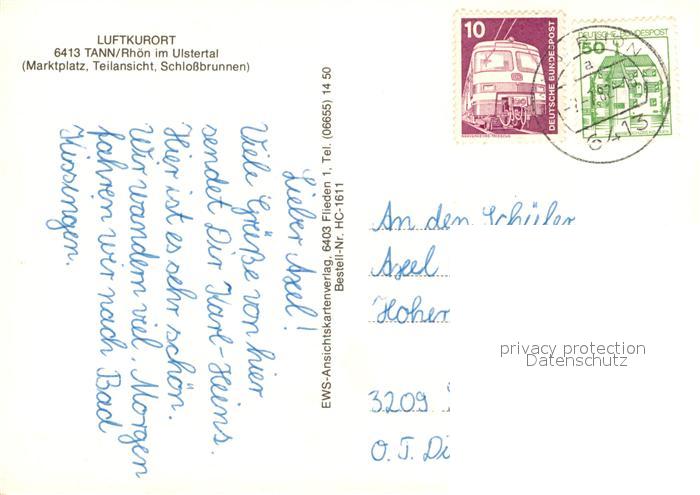 LUFTKURORT
6413 TANN/Rhön im Ulstertal
(Marktplatz, Teilansicht, Schloßbrunnen)
Lieber Axel!
Viele Grüße von hier
sendet Dir Karl-Heins.
Hier ist es sehr schön.
Wir wandern viel. Morgen
fahren wir nach Bad
Kissingen.
EWS-Ansichtskartenverlag, 6403 Flieden 1, Tel. (06655) 14 50
Bestell-Nr. HC-1611
10
DEUTSCHE BUNDESPOST
50
DEUTSCHE BUNDESPOST
6413
An den Schüler
Axel
Hoher
3209
O.T. Di
privacy protection
Datenschutz